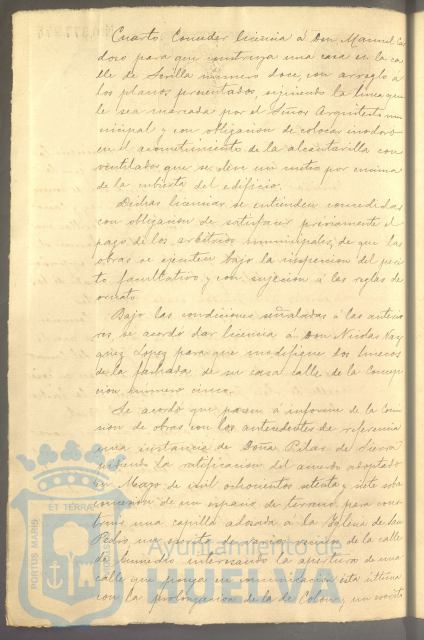 Cuarto. Conceder licencia á Don Manuel Car
doso para que construya una casa en la ca
lle de Sevilla número doce, con arreglo á
los planos presentados, siguiendo la línea que
le sea marcada por el Señor Arquitecto mu
nicipal y con obligacion de colocar inodoro
en el acometimiento de la alcantarilla con
ventilador que se eleve un metro por encima
de la cubierta del edificio.
Dichas licencias se entienden concedidas
con obligacion de satisfacer préviamente el
pago de los arbitrios municipales, de que las
obras se ejecuten bajo la inspeccion del peri
to facultativo y con sujecion á las reglas de
ornato.
Bajo las condiciones señaladas á las anterio
res se acordó dar licencia á Don Nicolas Vaz
quez Lopez para que modifique dos huecos
de la fachada de su casa calle de la Concep
cion número cinco.
Se acordó que pasen á informe de la Comi
sion de obras con los antecedentes de referencia
una instancia de Doña Pilar de Sierra
la ratificacion del acuerdo adoptado
en Mayo de mil ochocientos setenta y siete sobre
concesion de un espacio de terreno para cons
truir una capilla adosada á la Iglesia de San
Pedro, un escrito de varios vecinos de la calle
interesando la apertura de una
calle que ponga en comunicacion esta última
con la prolongacion de la de Colon, un escrito
PORTUS MARIS
ET TERRAE
CUSTODIA
Ayuntamiento de
HUELVA